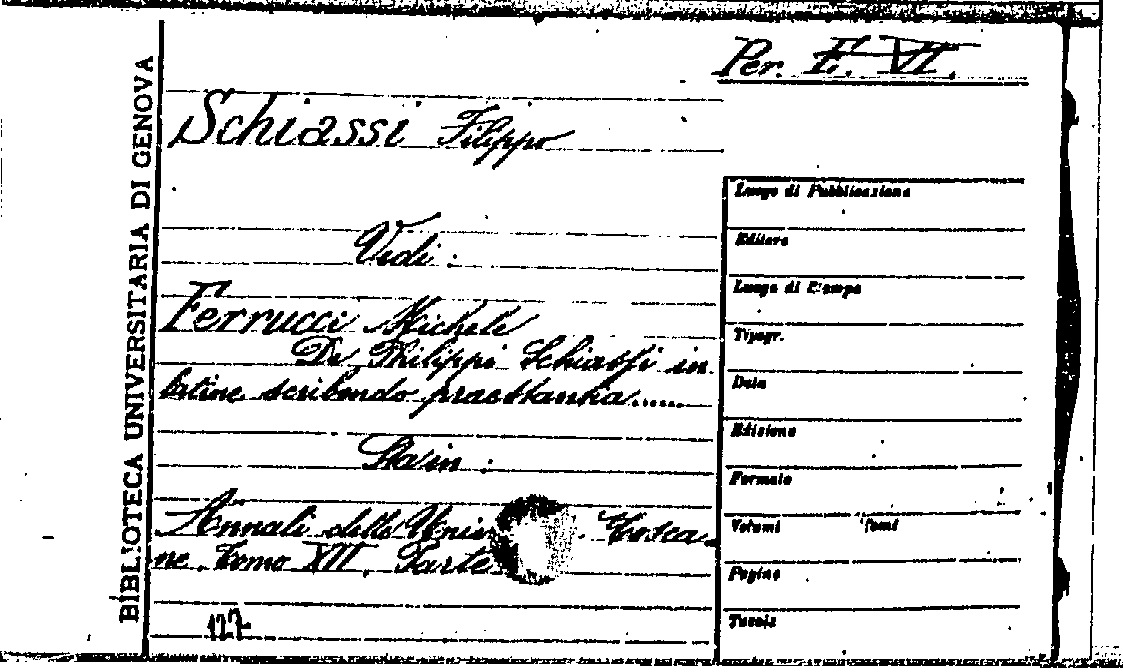 BIBLIOTECA UNIVERSITARIA DI GENOVA
Per. E. VII.
Schiassi Filippo
Vedi :
Ferrucci Michele
De Philippi Schiassi in
latine scribendo praestantia......
Sta in :
Annali delle Toscane
ne. Tomo XII. Parte
127
Luogo di Pubblicazione
Editore
Luogo di Stampa
Tipogr.
Data
Edizione
Formato
Volumi Tomi
Pagine
Tavole